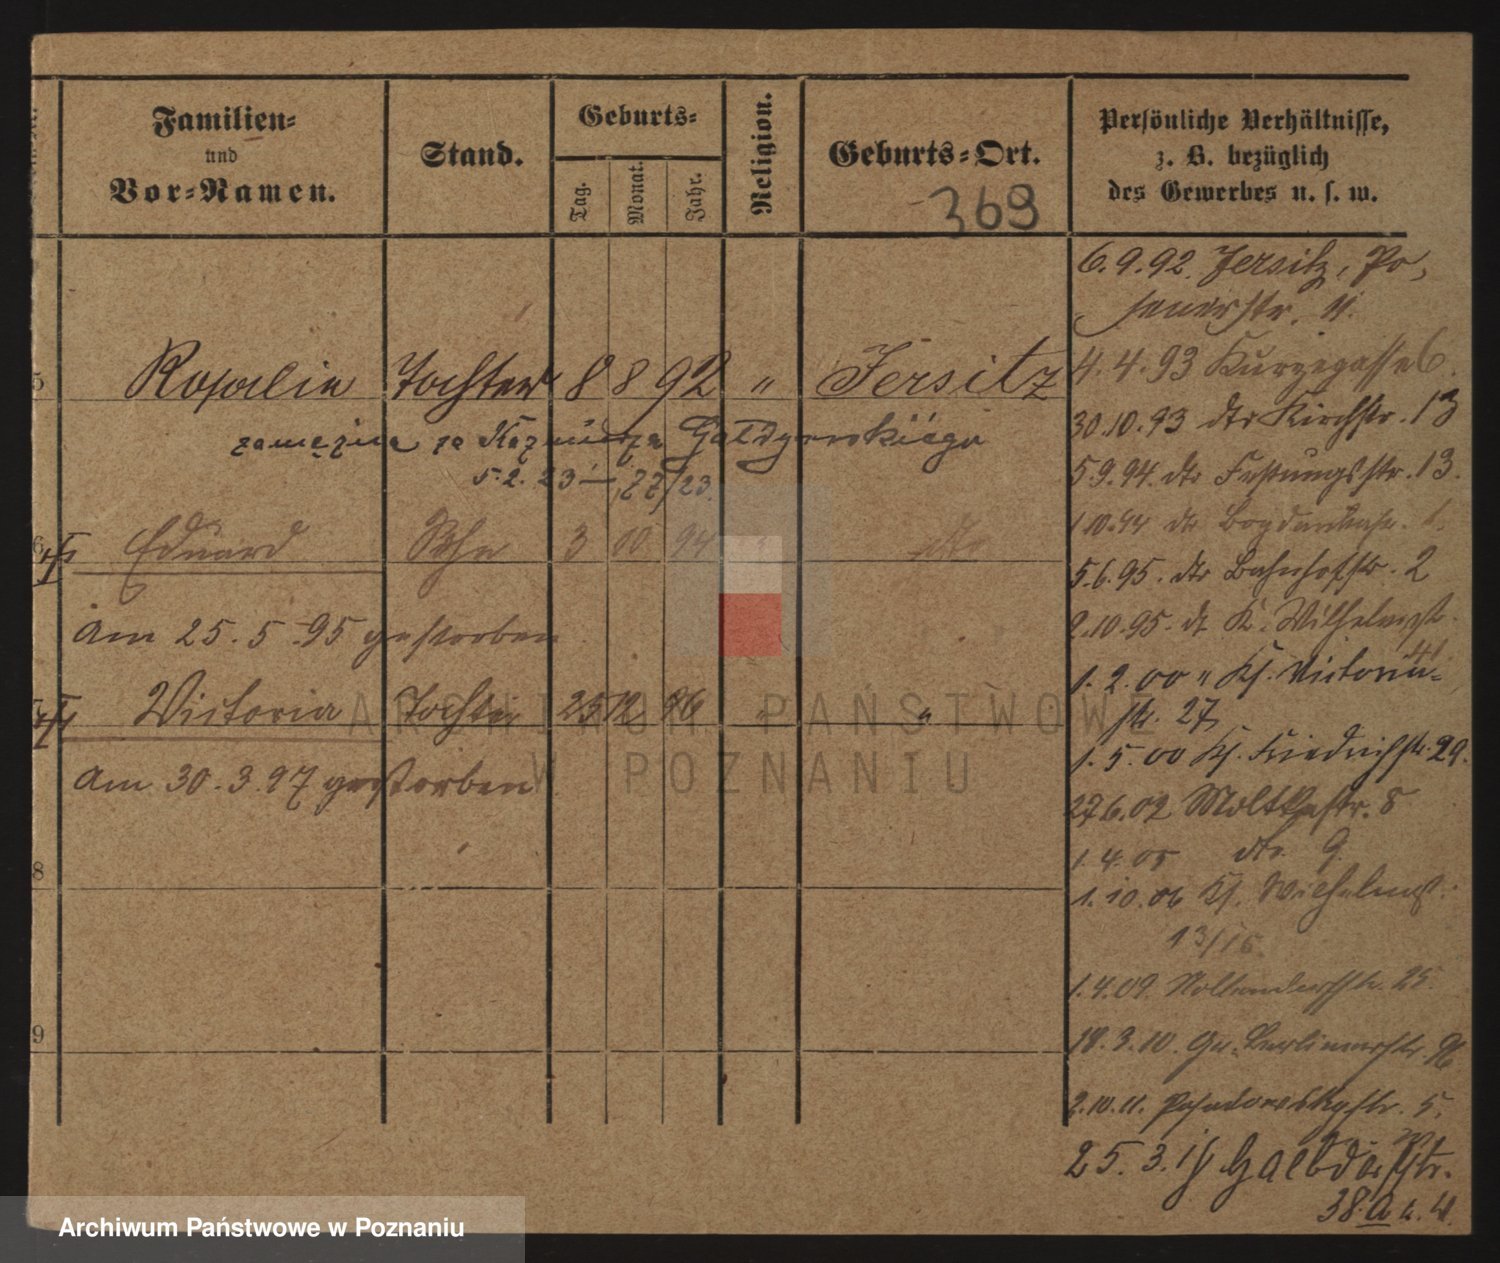 Familien=
und
Vor=Namen.
Stand.
Geburts=
Tag.
Monat.
Jahr.
Religion.
Geburts=Ort.
369
Persönliche Verhältnisse,
z. B. bezüglich
des Gewerbes u. s. w.
5 Rosalie Tochter 8 8 92 " Jersitz
zamężna za Kazimierza
5.2.23 — 77/23
6 Eduard Sohn 3 10 94 " dto
am 25.5.95 gestorben
7 Victoria Tochter 25 12 96 " "
am 30.3.97 gestorben
8
9
6.9.92. Jersitz, Po-
senerstr. 11.
4.4.93 Kurzegasse 6.
30.10.93 dto Kirchstr. 13
5.9.94. dto Festungsstr. 13.
1.10.94 dto
5.6.95. dto Bahnhofstr. 2
2.10.95. dt K. Wilhelmstr.
1.2.00 " Ks. Victoria-
str. 27
1.5.00 Ks. Friedrichstr. 29.
27.6.02 Moltkestr. 8
1.4.05 dto 9.
1.10.06 Ks. Wilhelmstr.
13/15.
1.4.09. Nollendorfstr. 25.
18.3.10. Gr. Berlinerstr. 96
2.10.11. Posadowskystr. 5.
25.3.15
38.a
ARCHIWUM PAŃSTWOWE
W POZNANIU
Archiwum Państwowe w Poznaniu